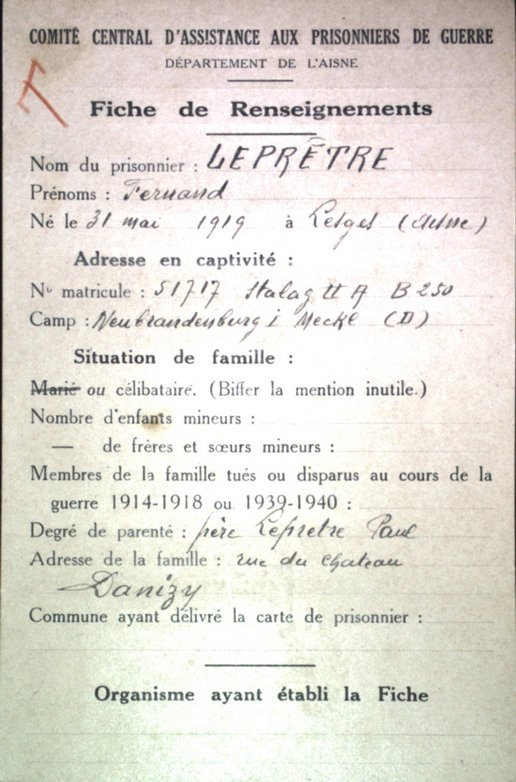 COMITÉ CENTRAL D'ASSISTANCE AUX PRISONNIERS DE GUERRE
DÉPARTEMENT DE L'AISNE
Fiche de Renseignements
Nom du prisonnier : LEPRÊTRE
Prénoms : Fernand
Né le 31 mai 1919 à Lesges (Aisne)
Adresse en captivité :
No matricule : 51717 Stalag II A B 250
Camp : Neubrandenburg i Meckl (D)
Situation de famille :
Marié ou célibataire. (Biffer la mention inutile.)
Nombre d'enfants mineurs :
— de frères et sœurs mineurs :
Membres de la famille tués ou disparus au cours de la
guerre 1914-1918 ou 1939-1940 :
Degré de parenté : père Lepretre Paul
Adresse de la famille : rue du chateau
Danizy
Commune ayant délivré la carte de prisonnier :
Organisme ayant établi la Fiche